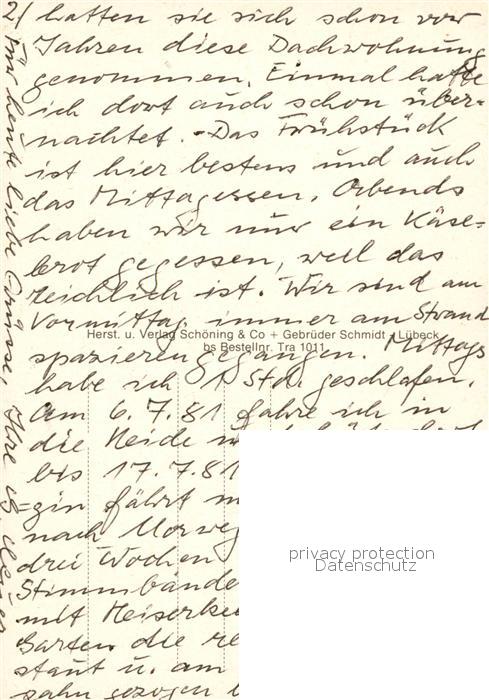 2/ hatten sie sich schon vor
Jahren diese Dachwohnung
genommen. Einmal hatte
ich dort auch schon über-
nachtet. - Das Frühstück
ist hier bestens und auch
das Mittagessen. Abends
haben wir nur ein Käse-
brot gegessen, weil das
reichlich ist. Wir sind am
Vormittag immer am Strand
Herst. u. Verlag Schöning & Co + Gebrüder Schmidt - Lübeck
bs Bestellnr. Tra 1011
spazieren gegangen. Mittags
habe ich 1 Std. geschlafen.
Am 6.7.81 fahre ich in
die Heide
bis 17.7.81
gin fährt
nach Norweg
drei Wochen
Stimmbände
mit Heiserkei
Garten die
staut u. am
zahn gezogen
privacy protection
Datenschutz
Für heute liebe Grüsse, Ihre